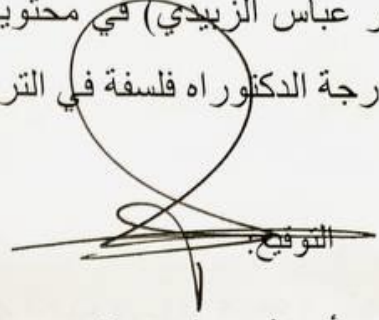 عباس الزبيدي) في محتويـ
رجة الدكتوراه فلسفة في التر
التوقيع: